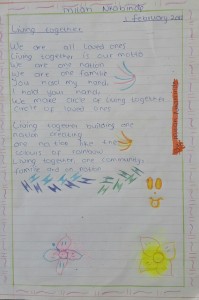 Milan Nrabinda
1 February 20
Living together
We are all loved ones
Living together is our motto
We are one nation
We are one familie
You hold my hand
I hold your hand
We make circle of living together
circle of loved ones
Living together building one
nation creating
one nation like the
colours of rainbow
Living together one community,
familie and on nation